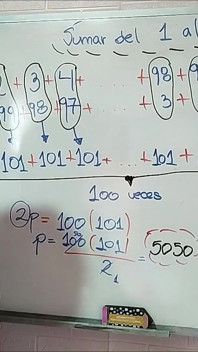 Sumar del 1 al
+ 3 + 4 + . . . + 98 +
99 98 97 . . . + 3 +
101 + 101 + 101 + . . . . . + 101 +
100 veces
2p = 100 (101)
p = 100 (101) = 5050
50
2 1